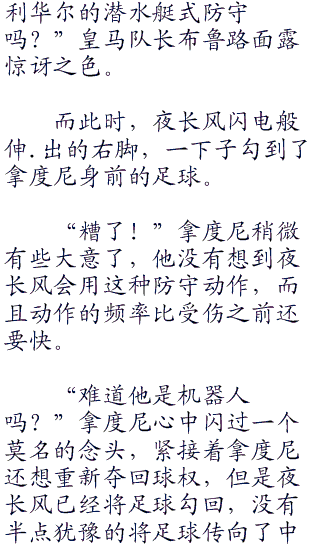 利华尔的潜水艇式防守
吗？”皇马队长布鲁路面露
惊讶之色。
而此时，夜长风闪电般
伸.出的右脚，一下子勾到了
拿度尼身前的足球。
“糟了！”拿度尼稍微
有些大意了，他没有想到夜
长风会用这种防守动作，而
且动作的频率比受伤之前还
要快。
“难道他是机器人
吗？”拿度尼心中闪过一个
莫名的念头，紧接着拿度尼
还想重新夺回球权，但是夜
长风已经将足球勾回，没有
半点犹豫的将足球传向了中